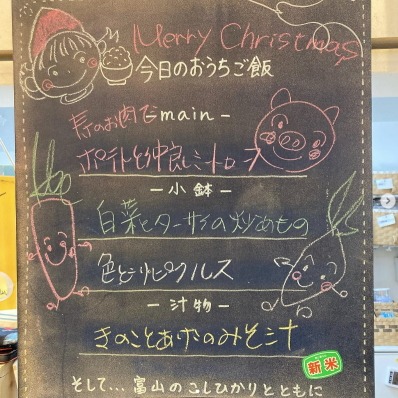 Merry Christmas
今日のおうちご飯
寿のお肉でmain-
ポテトと仲良しミートローフ
-小鉢-
白菜とターサイの炒めもの
色どりピクルス
-汁物-
きのことあげのみそ汁
新米
そして…富山のこしひかりとともに